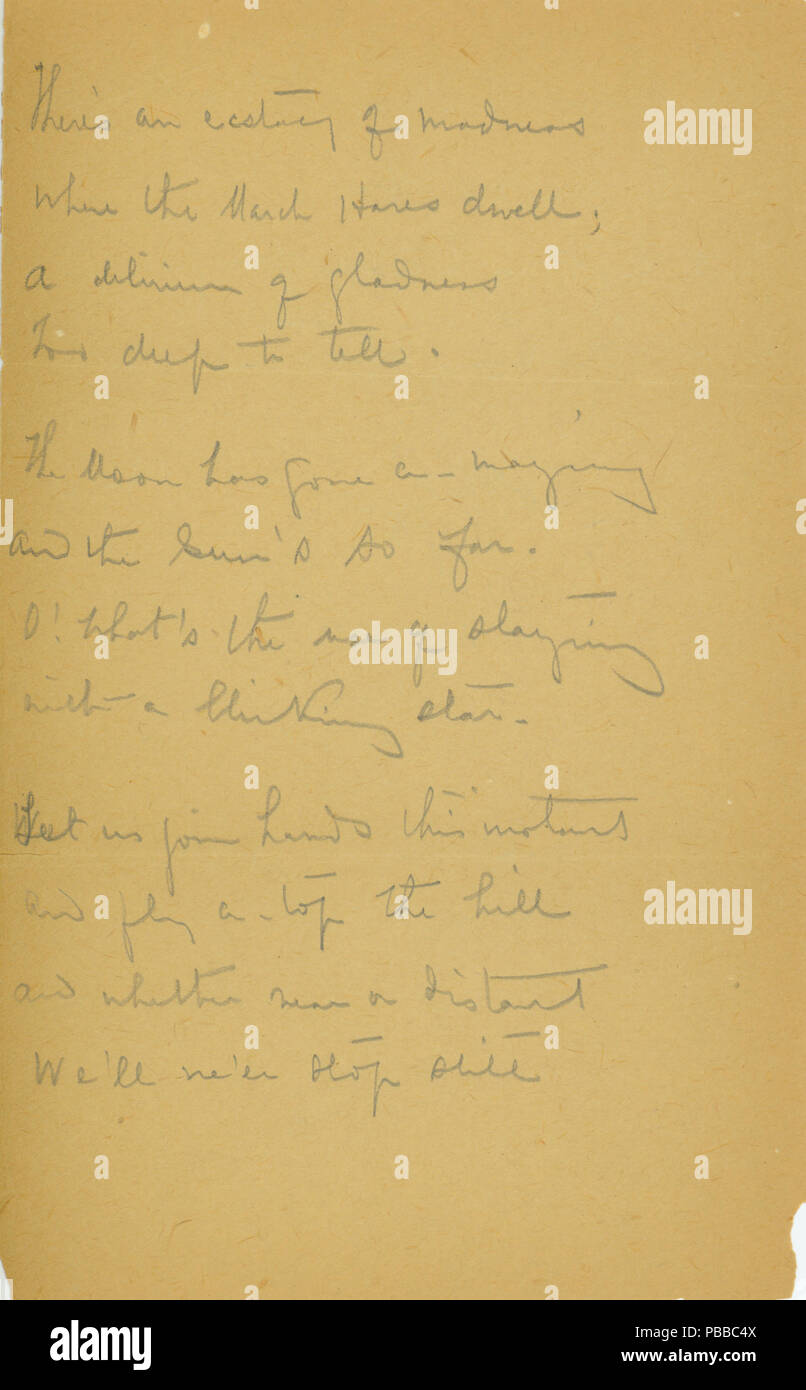 There's an ecstacy of madness
where the March Hares dwell;
a delirium of gladness
too deep to tell.
The Moon has gone a-maying
and the Sun's so far.
O! What's the use of staying
with a blinking star.
Let us join hands this instant
and fly a-top the hill
and whether near or distant
We'll ne'er stop still
alamy
alamy
alamy
Image ID: PBBC4X
www.alamy.com